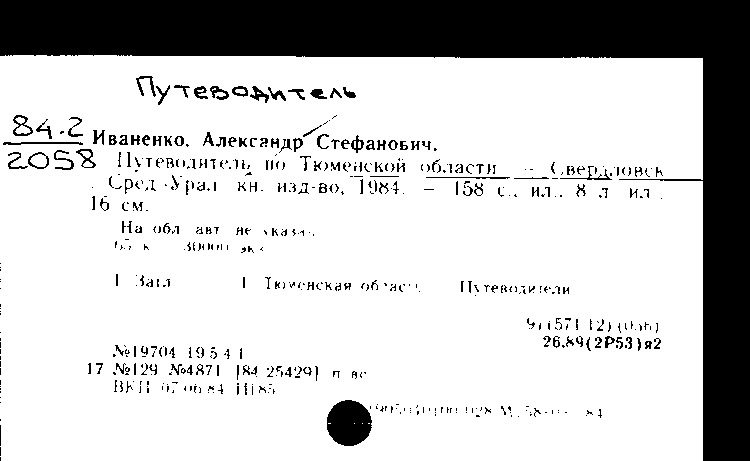 Путеводитель
84.2
2058
Иваненко, Александр Стефанович.
Путеводитель по Тюменской области — Свердловск
: Сред-Урал кн. изд-во, 1984. — 158 с., ил., 8 л ил.;
16 см.
На обл авт не указан
65 к 30000 экз
1 Загл 1 Тюменская область Путеводители
91(571 12)(036)
26.89(2Р53)я2
№19704 19 5 4 1
17 №129 №4871 [84 25429] п вс
ВКП 07 06 84 Н185
028 М 58 84